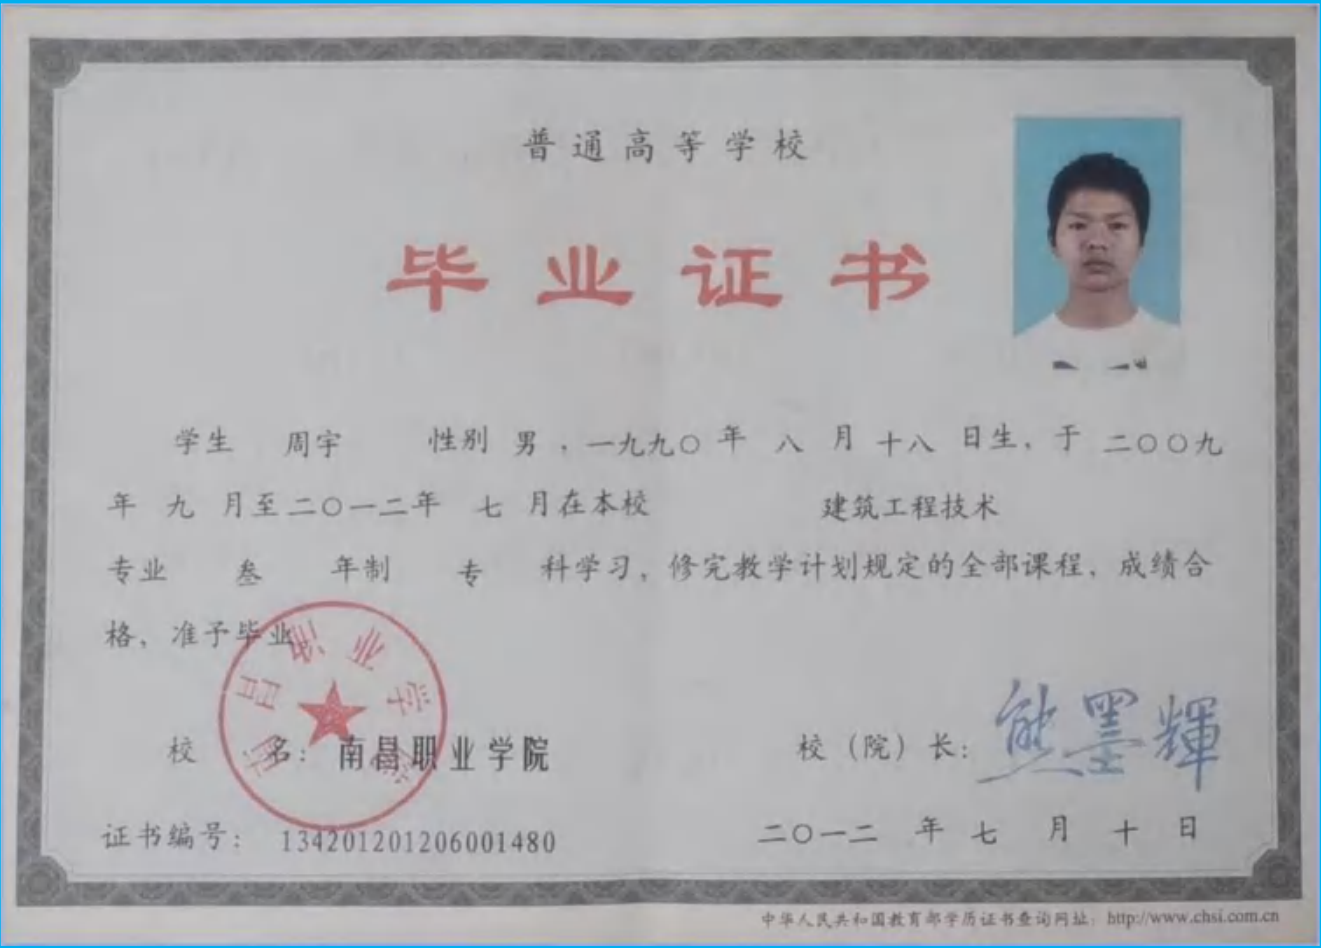 普通高等学校
毕业证书
学生 周宇 性别 男，一九九〇年 八 月 十八 日生，于 二〇〇九
年 九 月至二〇一二年 七 月在本校 建筑工程技术
专业 叁 年制 专 科学习，修完教学计划规定的全部课程，成绩合
格，准予毕业
南昌职业学院
校 名：南昌职业学院 校（院）长：熊墨輝
证书编号：134201201206001480 二〇一二 年 七 月 十 日
中华人民共和国教育部学历证书查询网址：http://www.chsi.com.cn